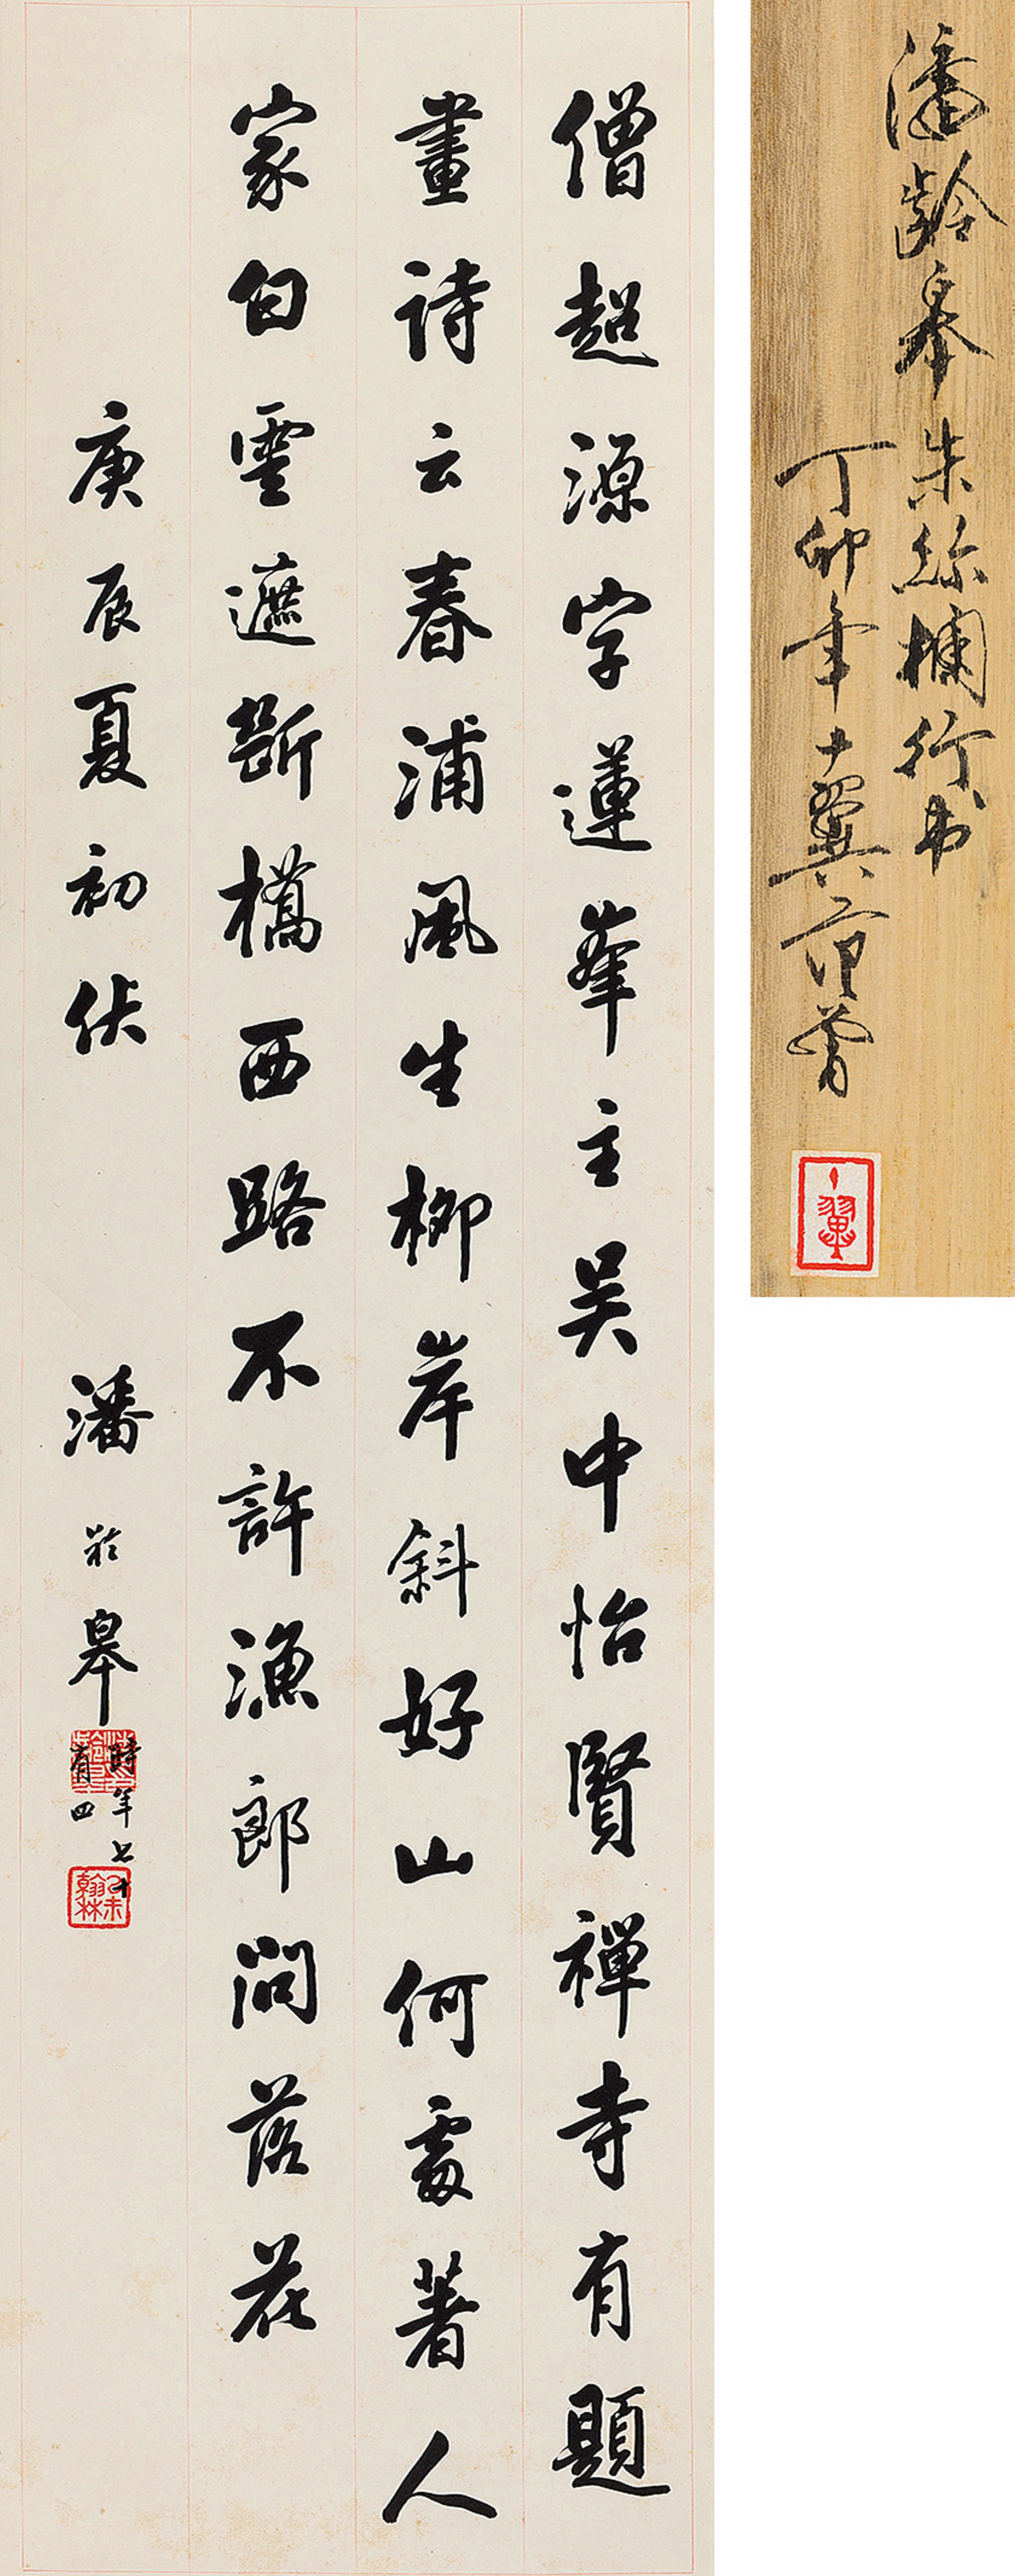 僧超源字蓮峯主吴中怡賢禪寺有題
畫詩云春浦風生柳岸斜好山何處著人
家白雲遮斷橋西路不許漁郎問落花
庚辰夏初伏
潘齡皋
時年七十
有四
己未
翰林
潘齡皋朱絲欄行书
丁卯年十翼范曾
十翼